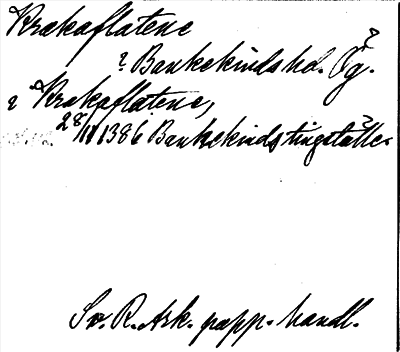 Krakaflatene
? Bankekinds hd. Ög.
i Krakaflatene,
28/11 1386 Bankekinds tingställe
Sv. R. Ark. papp. handl.